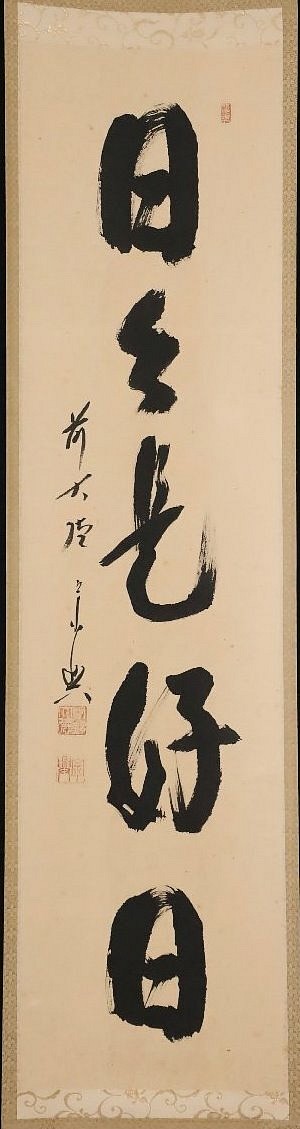 日々是好日
前大徳